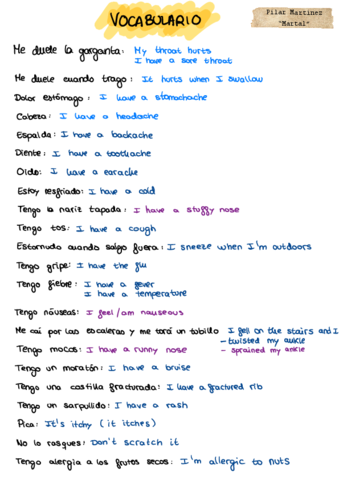 VOCABULARIO
Pilar Martinez
"Martal"
Me duele la garganta: My throat hurts
I have a sore throat
Me duele cuando trago: It hurts when I swallow
Dolor estómago: I have a stomachache
Cabeza: I have a headache
Espalda: I have a backache
Diente: I have a toothache
Oído: I have a earache
Estoy resfriado: I have a cold
Tengo la nariz tapada: I have a stuffy nose
Tengo tos: I have a cough
Estornudo cuando salgo fuera: I sneeze when I'm outdoors
Tengo gripe: I have the flu
Tengo fiebre: I have a fever
I have a temperature
Tengo náuseas: I feel/am nauseous
Me caí por las escaleras y me torcí un tobillo I fell on the stairs and I
- twisted my ankle
- sprained my ankle
Tengo mocos: I have a runny nose
Tengo un moratón: I have a bruise
Tengo una costilla fracturada: I have a fractured rib
Tengo un sarpullido: I have a rash
Pica: It's itchy (it itches)
No lo rasques: Don't scratch it
Tengo alergia a los frutos secos: I'm allergic to nuts